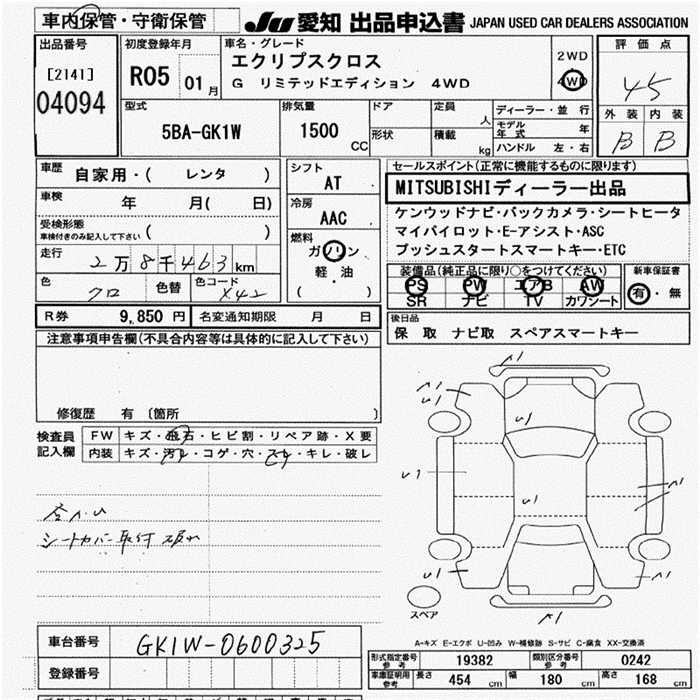 車内保管・守衛保管
JU 愛知 出品申込書 JAPAN USED CAR DEALERS ASSOCIATION
出品番号
[2141]
04094
初度登録年月
R05 01月
車名・グレード
エクリプスクロス
G リミテッドエディション 4WD
2WD
4WD
評価点
4.5
外装 内装
B B
型式
5BA-GK1W
排気量
1500 CC
ドア
形状
定員 人
積載 kg
ディーラー・並行
モデル年式 年
ハンドル 左・右
車歴 自家用・( レンタ )
車検 年 月( 日)
受検形態
車検付きのみ記入して下さい ( )
走行 2万8千463km
色 クロ 色替 色コード X42
シフト
AT
冷房
AAC
燃料
ガソリン
軽・油
( )
セールスポイント(正常に機能するものに限ります)
MITSUBISHIディーラー出品
ケンウッドナビ・バックカメラ・シートヒータ
マイパイロット・E-アシスト・ASC
プッシュスタートスマートキー・ETC
装備品(純正品に限り○をつけてください)
PS PW エアB AW
SR ナビ TV カワシート
新車保証書
有・無
R券 9,850円 名変通知期限 月 日
後日品
保 取 ナビ取 スペアスマートキー
注意事項申告欄(不具合内容等は具体的に記入して下さい)
修復歴 有 〔箇所 〕
検査員記入欄
FW キズ・飛石・ヒビ割・リペア跡・X要
内装 キズ・汚れ・コゲ・穴・スレ・キレ・破レ
シートカバー取付
A1
A1
U1
U1
U1
U1
A1
U1
A1
A1
スペア
A-キズ E-エクボ U-凹み W-補修跡 S-サビ C-腐食 XX-交換済
車台番号 GK1W-0600325
登録番号
形式指定番号 参考 19382 類別区分番号 参考 0242
車庫証明用 参考 長さ 454cm 幅 180cm 高さ 168cm